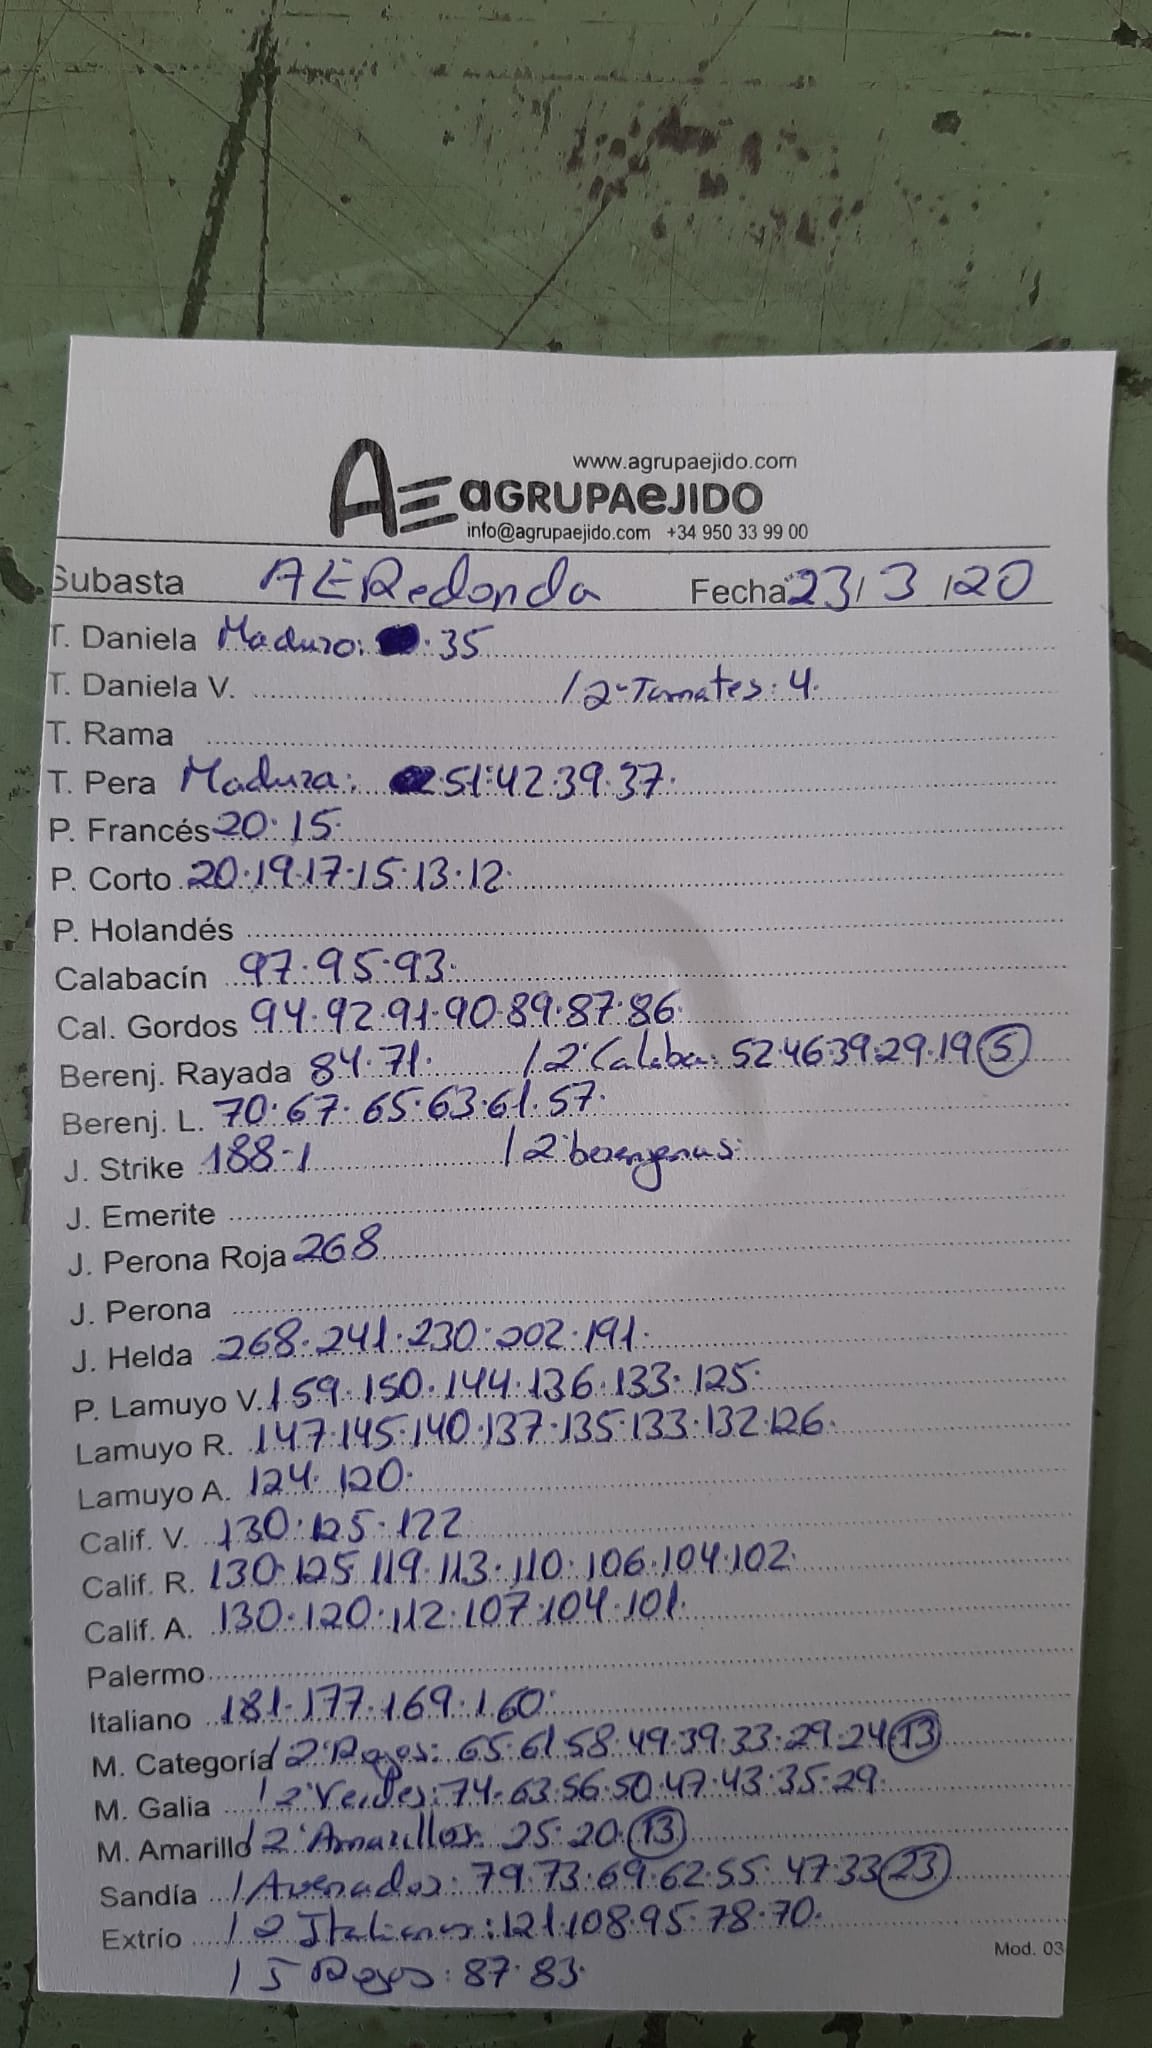 www.agrupaejido.com
AE aGRUPAeJIDO
info@agrupaejido.com +34 950 33 99 00
Subasta AERedonda Fecha 23/3/20
T. Daniela Maduro: 35
T. Daniela V. / 2ª Tomates: 4.
T. Rama
T. Pera Madura: 51.42.39.37.
P. Francés 20.15.
P. Corto 20.19.17.15.13.12.
P. Holandés
Calabacín 97.95.93.
Cal. Gordos 94.92.91.90.89.87.86.
Berenj. Rayada 84.71. / 2ª Calaba: 52.46.39.29.19 (5)
Berenj. L. 70.67.65.63.61.57.
J. Strike 188-1 / 2ª berengenas:
J. Emerite
J. Perona Roja 268
J. Perona
J. Helda 268.241.230.202.191.
P. Lamuyo V. 159.150.144.136.133.125.
Lamuyo R. 147.145.140.137.135.133.132.126.
Lamuyo A. 124.120.
Calif. V. 130.125.122
Calif. R. 130.125.119.113.110.106.104.102.
Calif. A. 130.120.112.107.104.101.
Palermo
Italiano 181.177.169.160.
M. Categoría / 2ª Rojos: 65.61.58.49.39.33.29.24 (13)
M. Galia / 2ª Verdes: 74.63.56.50.47.43.35.29.
M. Amarillo / 2ª Amarillos: 25.20.(13)
Sandía / Asurcados: 79.73.69.62.55.47.33 (23)
Extrio / 2 Italianos: 121.108.95.78.70.
Mod. 03
/ 5 Rojos: 87.83.